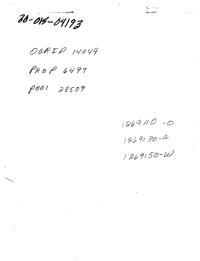 30-015-04193
OGRID 14049
PROP 6497
POOL 28509
1269110-O
1269130-G
1269150-W